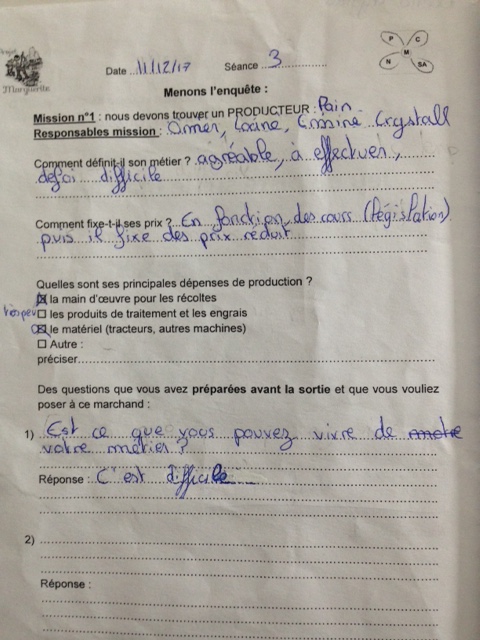 Marguerite
P C M N SA
Date 11/12/17 Séance 3
Menons l'enquête :
Mission n°1 : nous devons trouver un PRODUCTEUR : Pain
Responsables mission : Omer, Loane, Emine Crystall
Comment définit-il son métier ? agréable, à effectuer,
défoi difficile
Comment fixe-t-il ses prix ? En fonction des cours (législation)
puis il fixe des prix réduit
Quelles sont ses principales dépenses de production ?
☒ la main d'œuvre pour les récoltes
☐ les produits de traitement et les engrais
☒ le matériel (tracteurs, autres machines)
☐ Autre :
préciser
Des questions que vous avez préparées avant la sortie et que vous vouliez
poser à ce marchand :
1) Est ce que vous pouvez vivre de metre
votre métier ?
Réponse : C'est difficile
2)
Réponse :